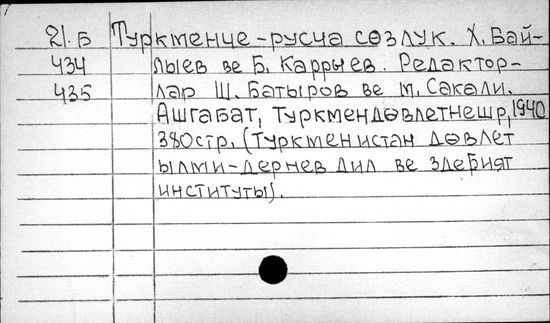 21.Б Туркменче-русча сөзлук. Х. Бай-
434 лыев ве Б. Каррыев. Редактор-
435 лар Ш. Батыров ве М. Сакали.
Ашгабат, Туркмендөвлетнешр, 1940
380стр. (Туркменистан дөвлет
ылми-дернев Дил ве эдебият
институты).